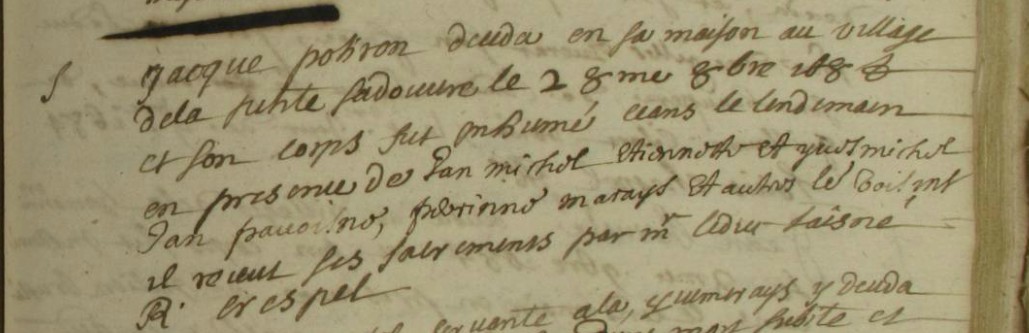 Jacque potiron deceda en sa maison au village
dela petite Sadouere le 28me 8bre 168
et son corps fut inhumé ceans le lendemain
en presence de Jan michel Etiennette et yves michel
Jan pauoisne, perrinne marays Et autres le
il receut ses sacrements par mr leduc laisné
R. crespel
servante a la y deceda
mort subite et